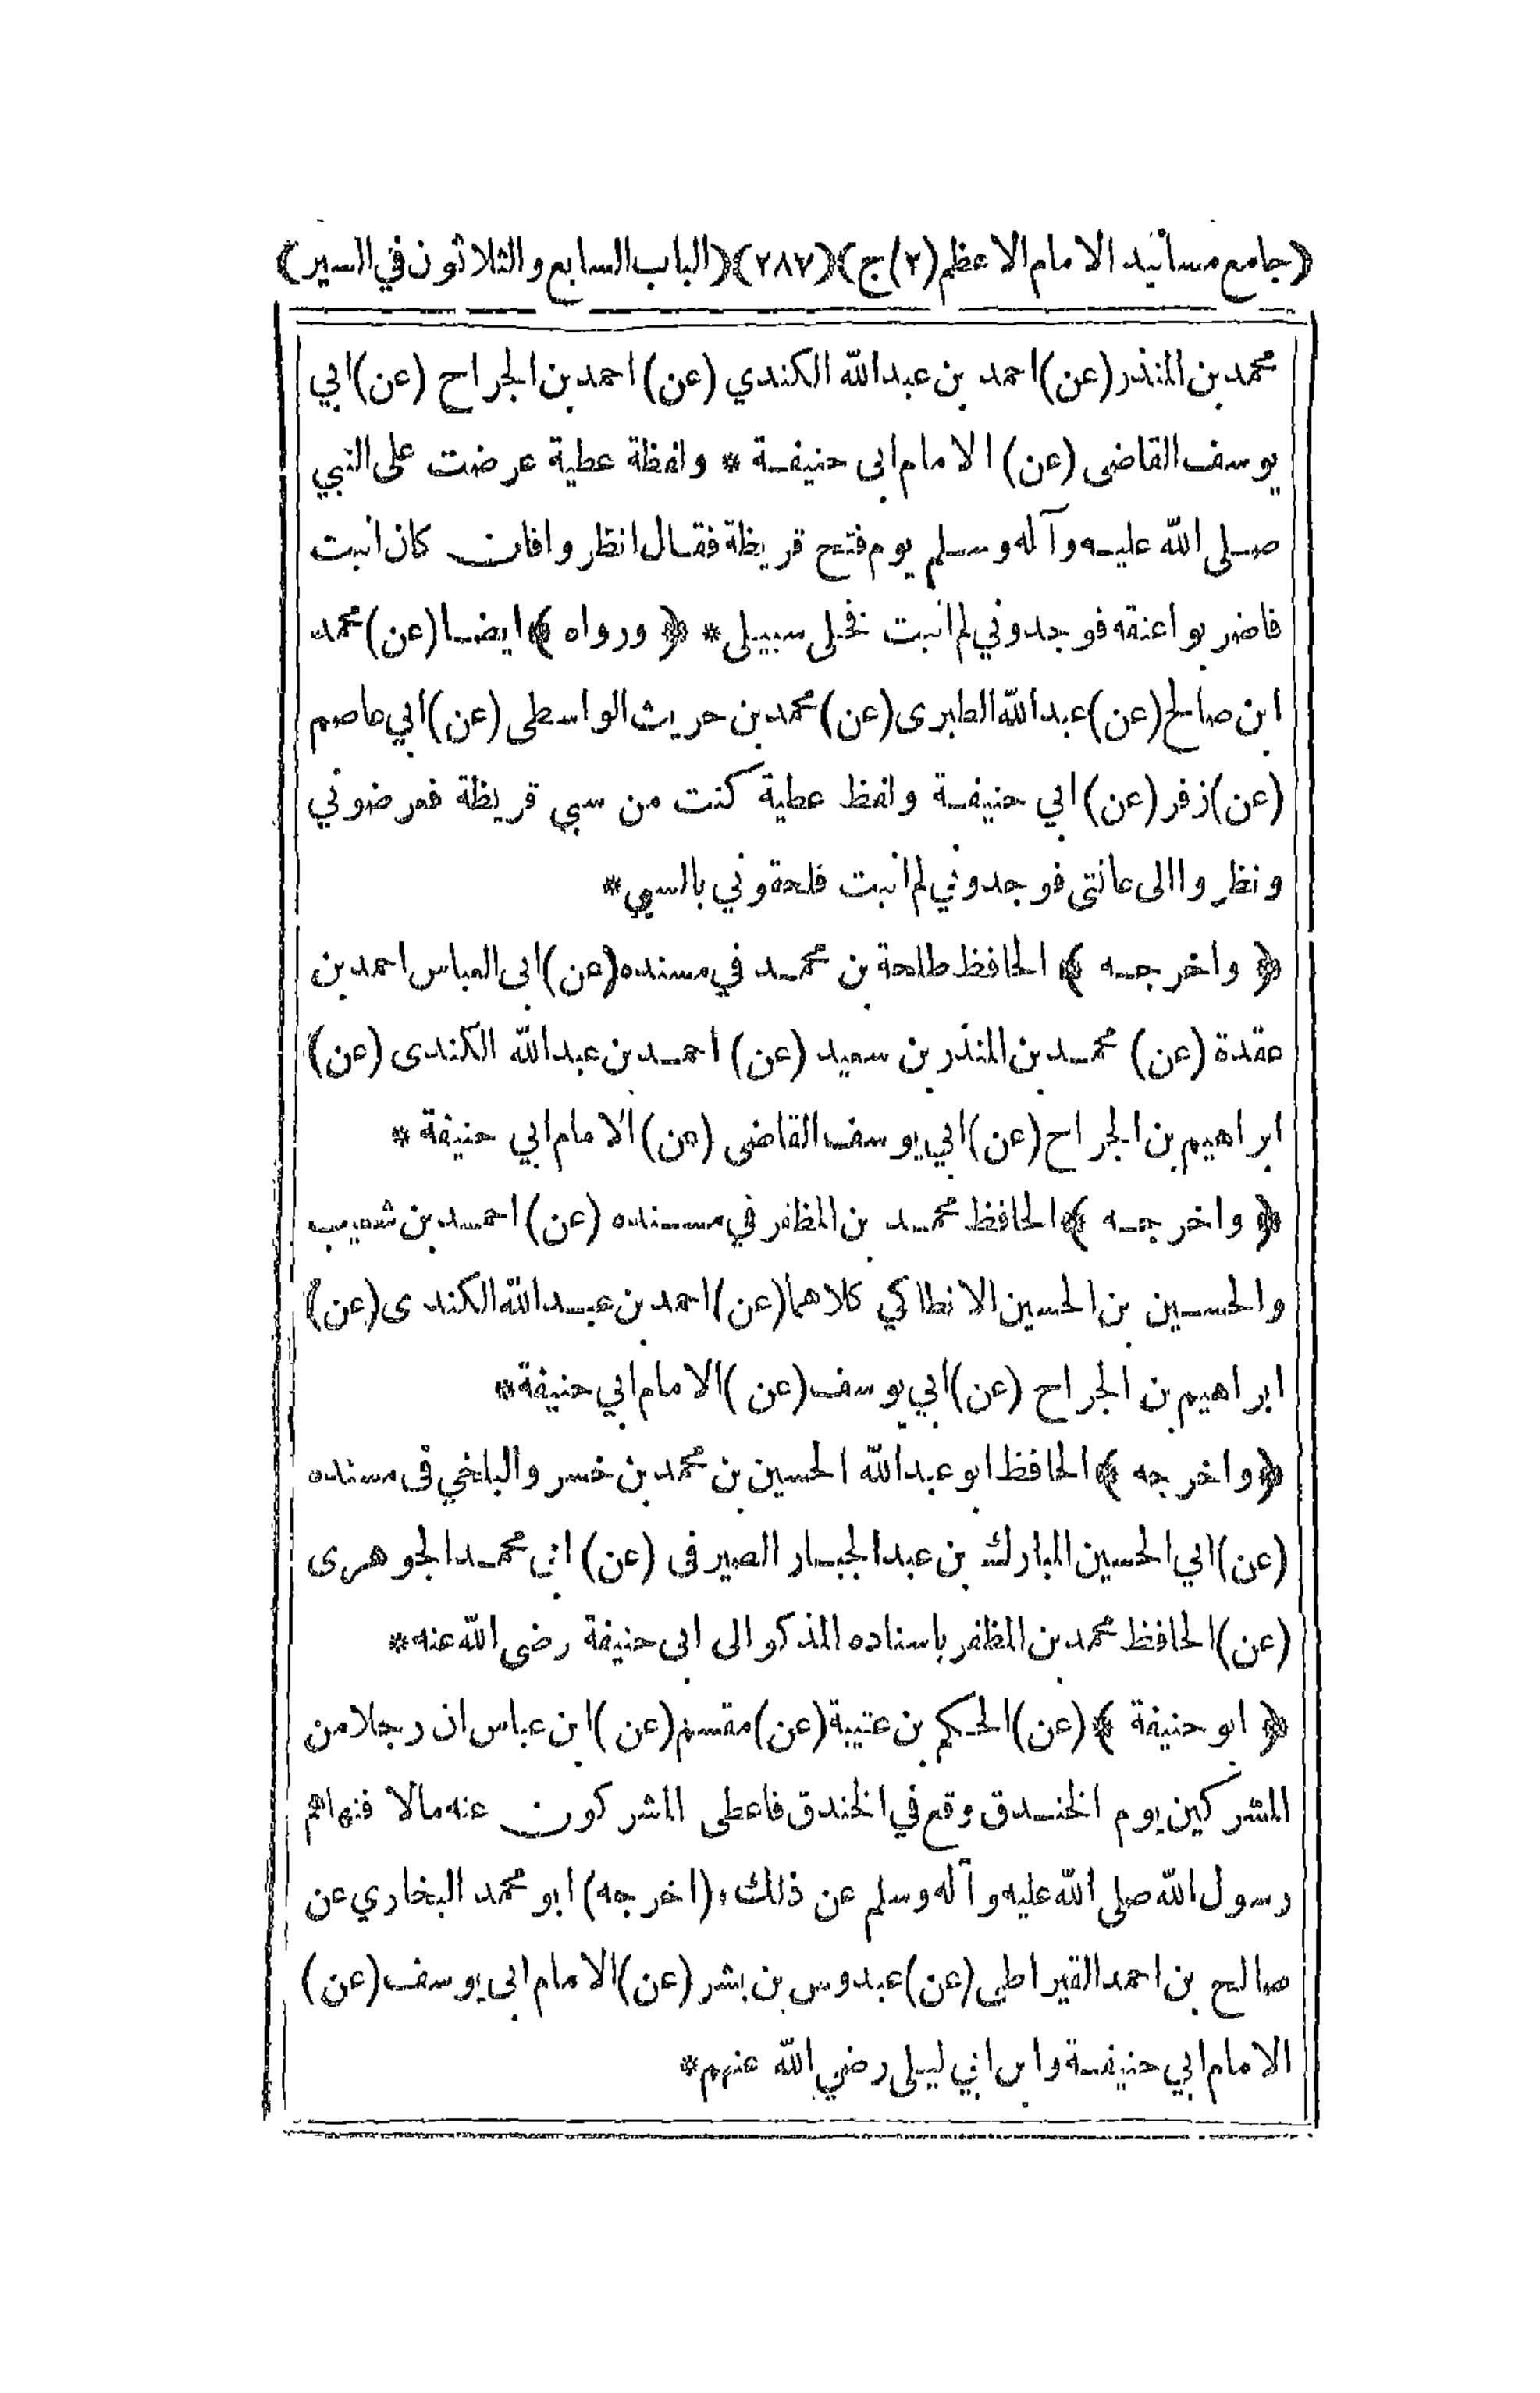 (جامع مسانيد الامام الاعظم (٢) ج) (٢٨٧) (الباب السابع والثلاثون في السير)
محمد بن المنذر (عن) احمد بن عبدالله الكندي (عن) احمد بن الجراح (عن) ابي
يوسف القاضى (عن) الامام ابى حنيفة * ولفظة عطية عرضت على النبي
صلى الله عليه وآله وسلم يوم فتح قريظة فقال انظروا فان كان انبت
فاضربوا عنقه فوجدوني لم انبت فخلى سبيلى * ﴿ ورواه ﴾ ايضا (عن) محمد
ابن صالح (عن) عبدالله الطبرى (عن) محمد بن حريث الواسطى (عن) ابي عاصم
(عن) زفر (عن) ابي حنيفة ولفظ عطية كنت من سبي قريظة فعرضوني
ونظروا الى عانتى فوجدوني لم انبت فلحقوني بالسبي *
﴿ واخرجه ﴾ الحافظ طلحة بن محمد في مسنده (عن) ابى العباس احمد بن
عقدة (عن) محمد بن المنذر بن سعيد (عن) احمد بن عبدالله الكندى (عن)
ابراهيم بن الجراح (عن) ابي يوسف القاضى (عن) الامام ابي حنيفة *
﴿ واخرجه ﴾ الحافظ محمد بن المظفر في مسنده (عن) احمد بن شعيب
والحسين بن الحسين الانطاكي كلاهما (عن) احمد بن عبدالله الكندى (عن)
ابراهيم بن الجراح (عن) ابي يوسف (عن) الامام ابي حنيفة *
﴿ واخرجه ﴾ الحافظ ابو عبدالله الحسين بن محمد بن خسرو البلخي فى مسنده
(عن) ابي الحسين المبارك بن عبد الجبار الصيرفى (عن) ابى محمد الجوهرى
(عن) الحافظ محمد بن المظفر باسناده المذكو الى ابى حنيفة رضى الله عنه *
﴿ ابو حنيفة ﴾ (عن) الحكم بن عتيبة (عن) مقسم (عن) ابن عباس ان رجلا من
المشركين يوم الخندق وقع في الخندق فاعطى المشركون عنه مالا فنهاهم
رسول الله صلى الله عليه وآله وسلم عن ذلك، (اخرجه) ابو محمد البخاري عن
صالح بن احمد القيراطى (عن) عبدوس بن بشر (عن) الامام ابى يوسف (عن)
الامام ابي حنيفة وابن ابي ليلى رضي الله عنهم *